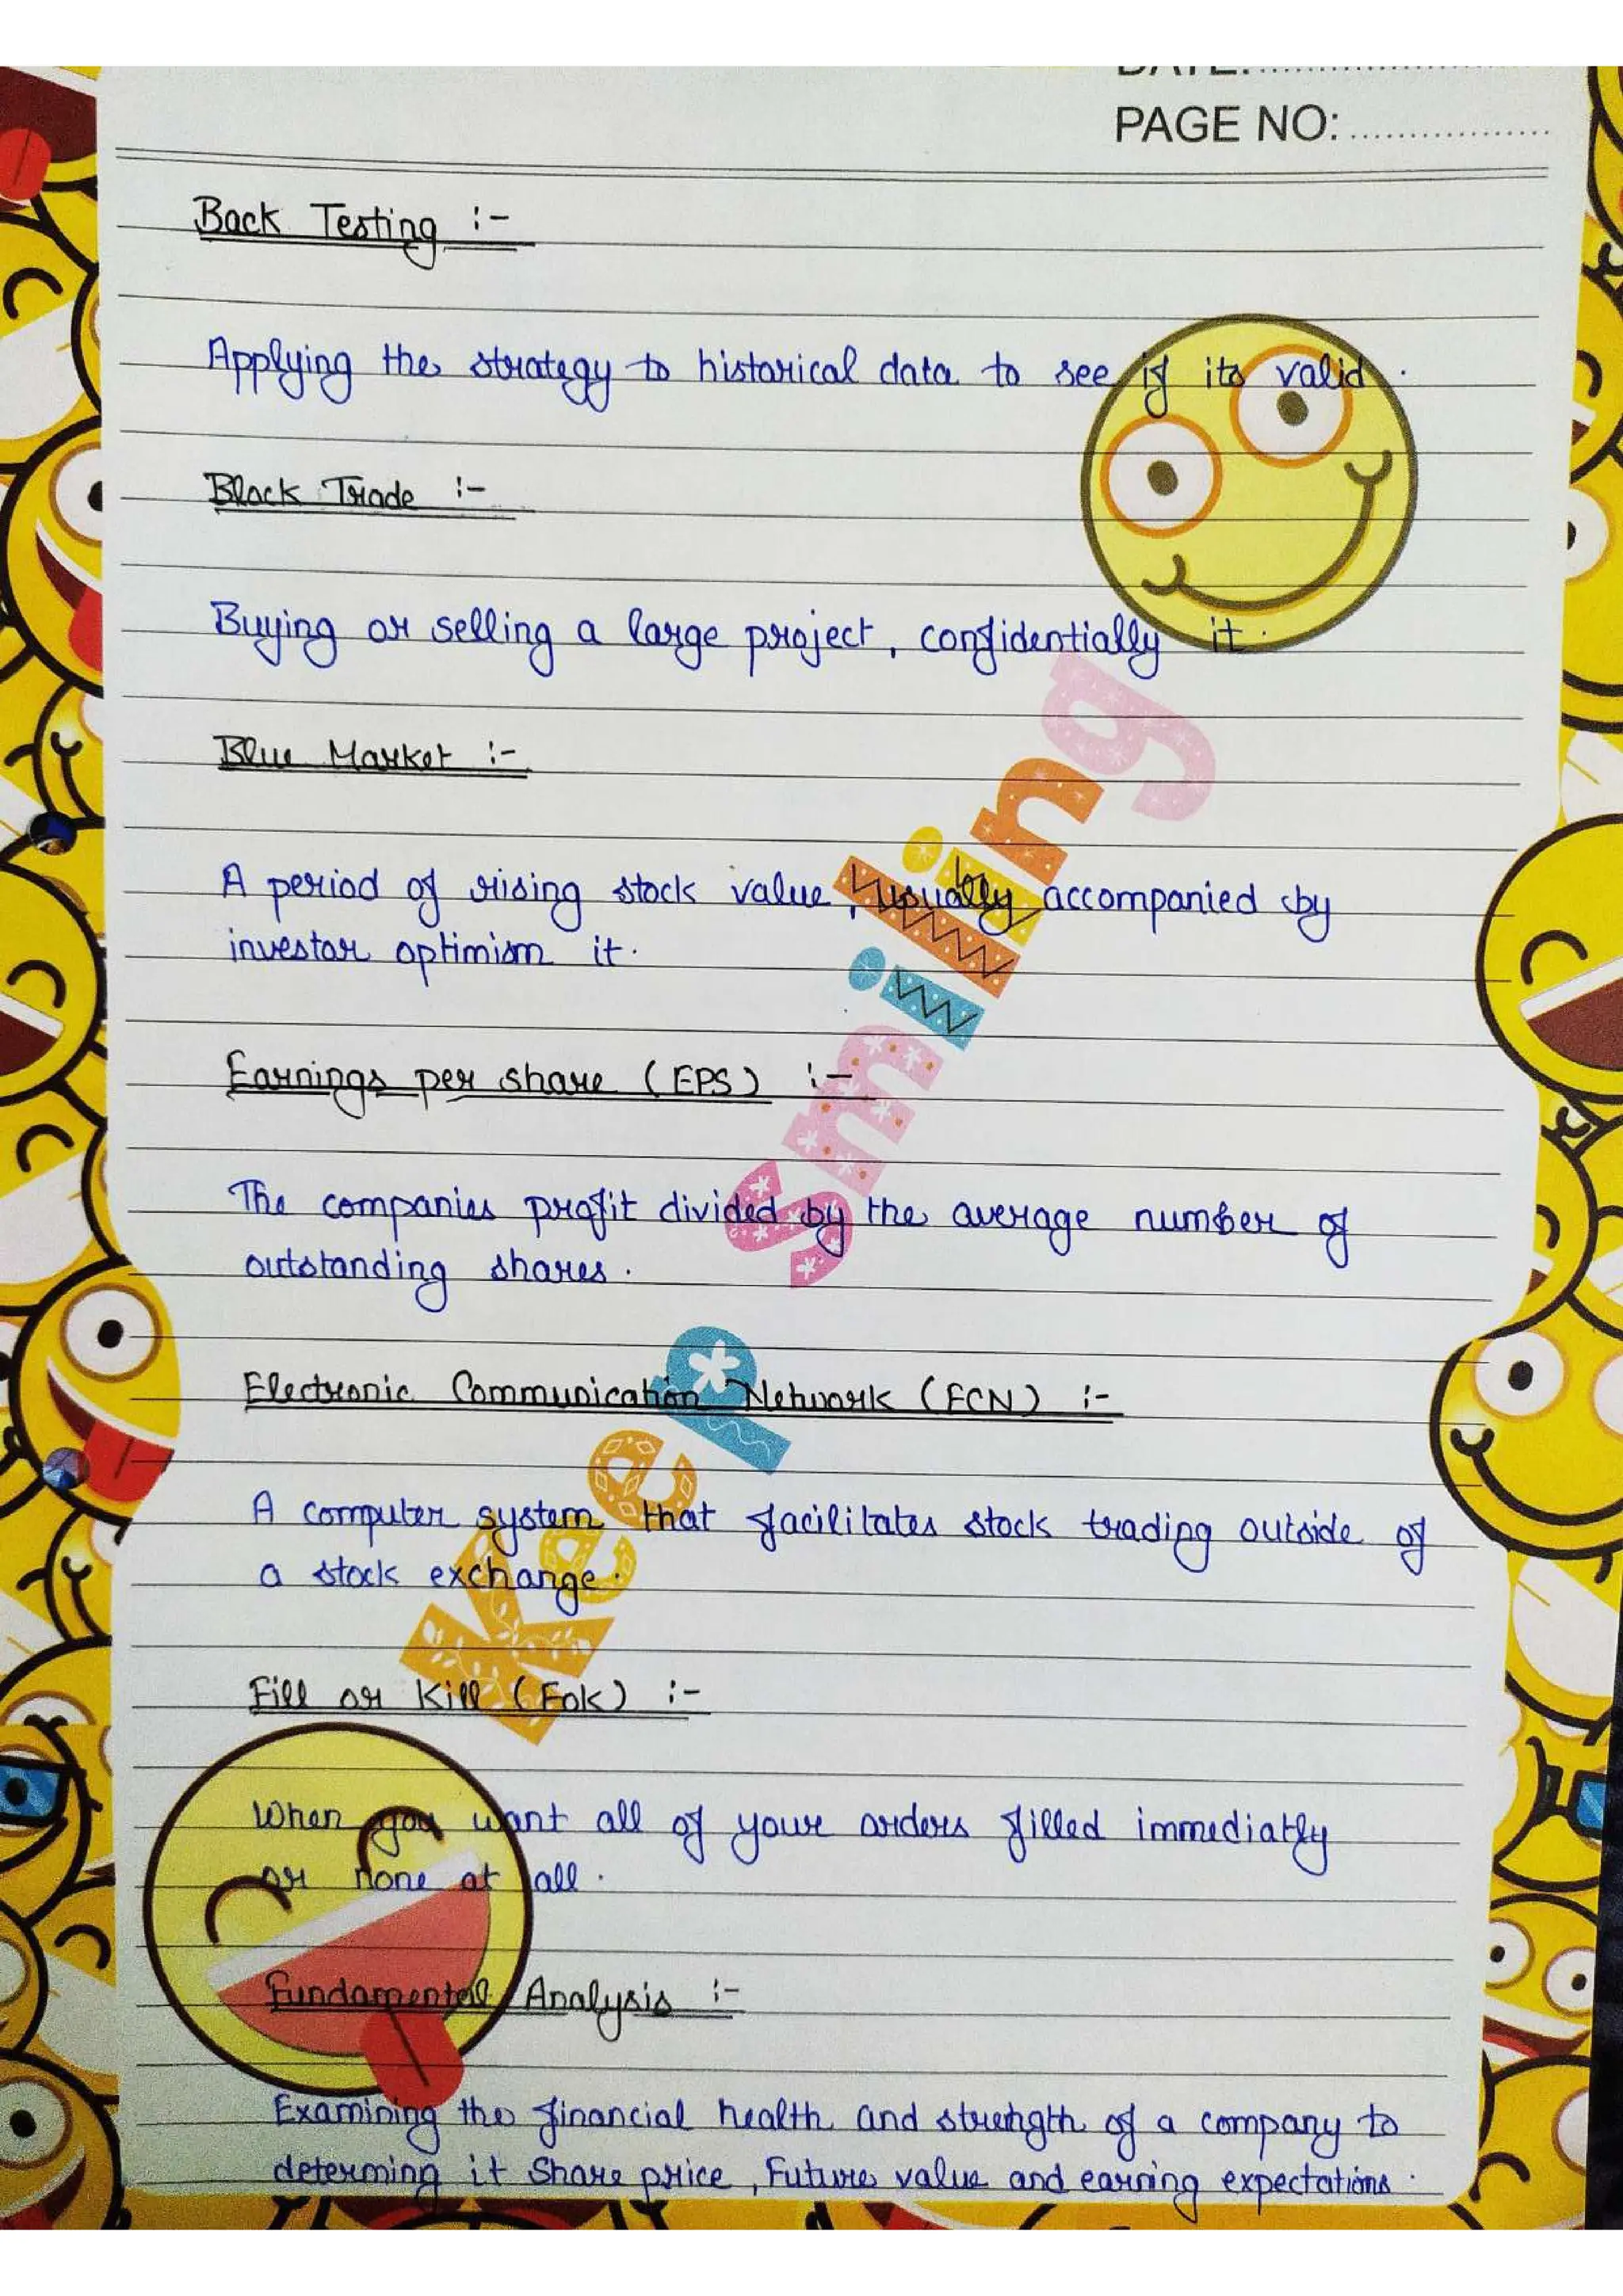 PAGE NO:
Back Testing :-
Applying the strategy to historical data to see if its valid.
Block Trade :-
Buying or selling a large project, confidentially it.
Blue Market :-
A period of rising stock value, usually accompanied by
investor optimism it.
Earnings per share (EPS) :-
The companies profit divided by the average number of
outstanding shares.
Electronic Communication Network (ECN) :-
A computer system that facilitates stock trading outside of
a stock exchange.
Fill or Kill (Fok) :-
When you want all of your orders filled immediatly
or none at all.
Fundamental Analysis :-
Examining the financial health and strength of a company to
determing it Share price, Future value and earning expectations.
Keep Smiling